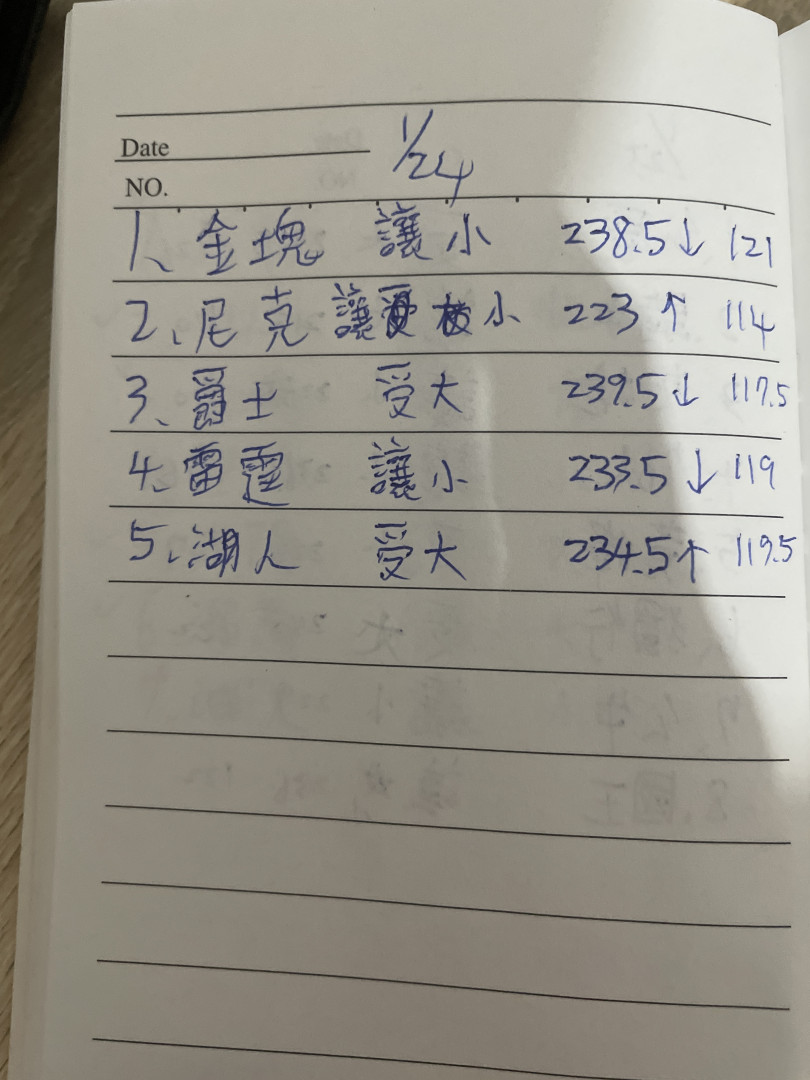 Date
1/24
NO.
1、金塊 讓小 238.5↓ 121
2、尼克 讓 小 223↑ 114
3、爵士 受大 239.5↓ 117.5
4、雷霆 讓小 233.5↓ 119
5、湖人 受大 234.5↑ 119.5